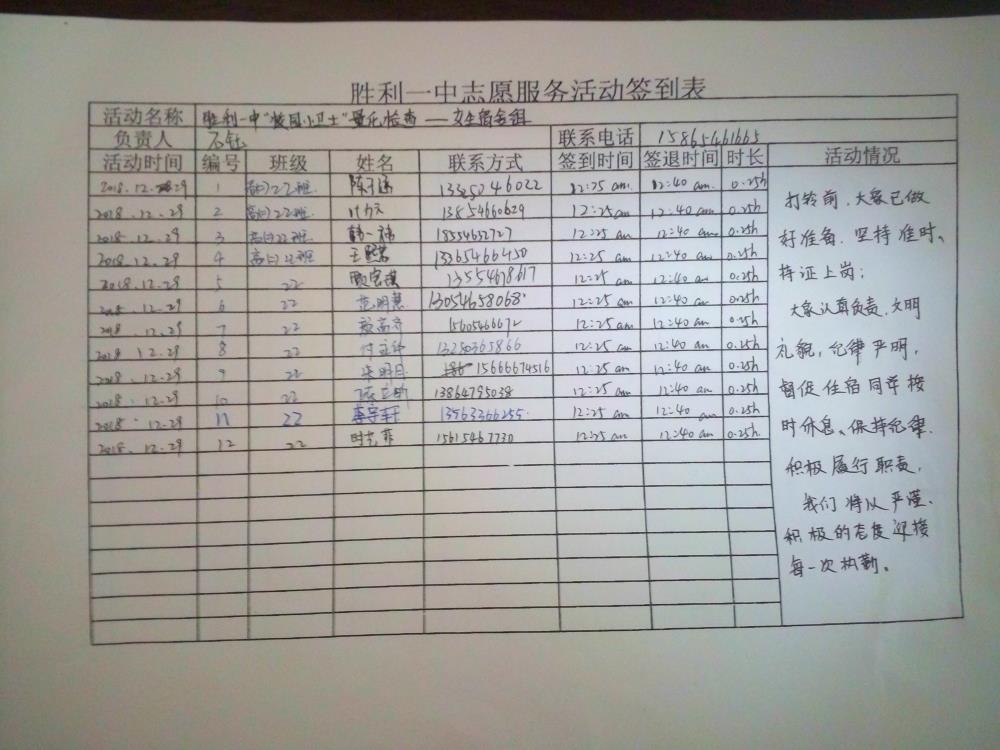 胜利一中志愿服务活动签到表
活动名称 胜利一中"校园小卫士"量化检查——女生宿舍组
负责人 联系电话 15865461665
活动时间 编号 班级 姓名 联系方式 签到时间 签退时间 时长 活动情况
2018.12.29 1 高一22班 12:25 am. 12:40 am. 0.25h
2018.12.29 2 高一22班. 13854660629 12:25 am 12:40 am. 0.25h
2018.12.29 3 高一22班. 韩一 18554652727 12:25 am 12:40 am 0.25h
2018.12.29 4 高一22班 王 13365466450 12:25 am 12:40 am 0.25h
2018.12.29 5 22 13554678617 12:25 am 12:40 am. 0.25h
12.29 6 22 13054658068 12:25 am 12:40 am 0.25h
2018 12.29 7 22 12:25 am 12:40 am 0.25h
2018 12.29 8 22 13280365866 12:25 am 12:40 am 0.25h
2018.12.29 9 22 15666674516 12:25 am 12:40 am 0.25h
2018.12.29 10 22 13864795038 12:25 am 12:40 am 0.25h
2018.12.29 11 22 13963266255. 12:25 am 12:40 am 0.25h
2018.12.29 12 22 15615467730 12:25 am 12:40 am 0.25h.
打铃前，大家已做
好准备，坚持准时、
持证上岗；
大家认真负责，文明
礼貌，纪律严明，
督促住宿同学按
时休息、保持纪律.
积极履行职责，
我们将以严谨、
积极的态度迎接
每一次执勤。